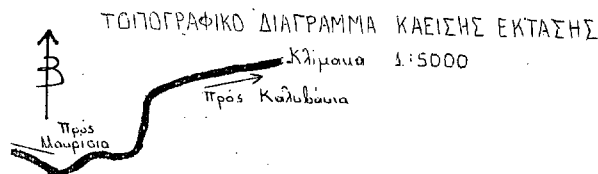 ΤΟΠΟΓΡΑΦΙΚΟ ΔΙΑΓΡΑΜΜΑ ΚΛΕΙΣΗΣ ΕΚΤΑΣΗΣ
Κλίμακα 1:5000
Β
Πρός Καλυβάκια
Πρός
Μαυρίσια